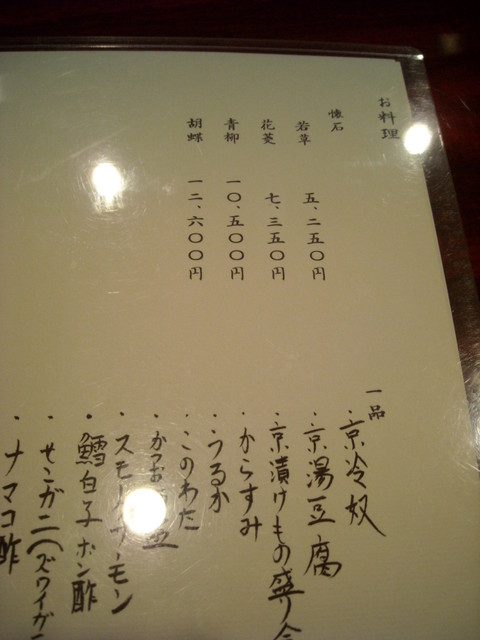 お料理
懐石
若草 五、二五〇円
花菱 七、三五〇円
青柳 一〇、五〇〇円
胡蝶 一二、六〇〇円
一品
・京冷奴
・京湯豆腐
・京漬けもの盛り
・からすみ
・うるか
・このわた
・かつお
・スモークサーモン
・鱈白子ポン酢
・せこガニ(ズワイガニ
・ナマコ酢